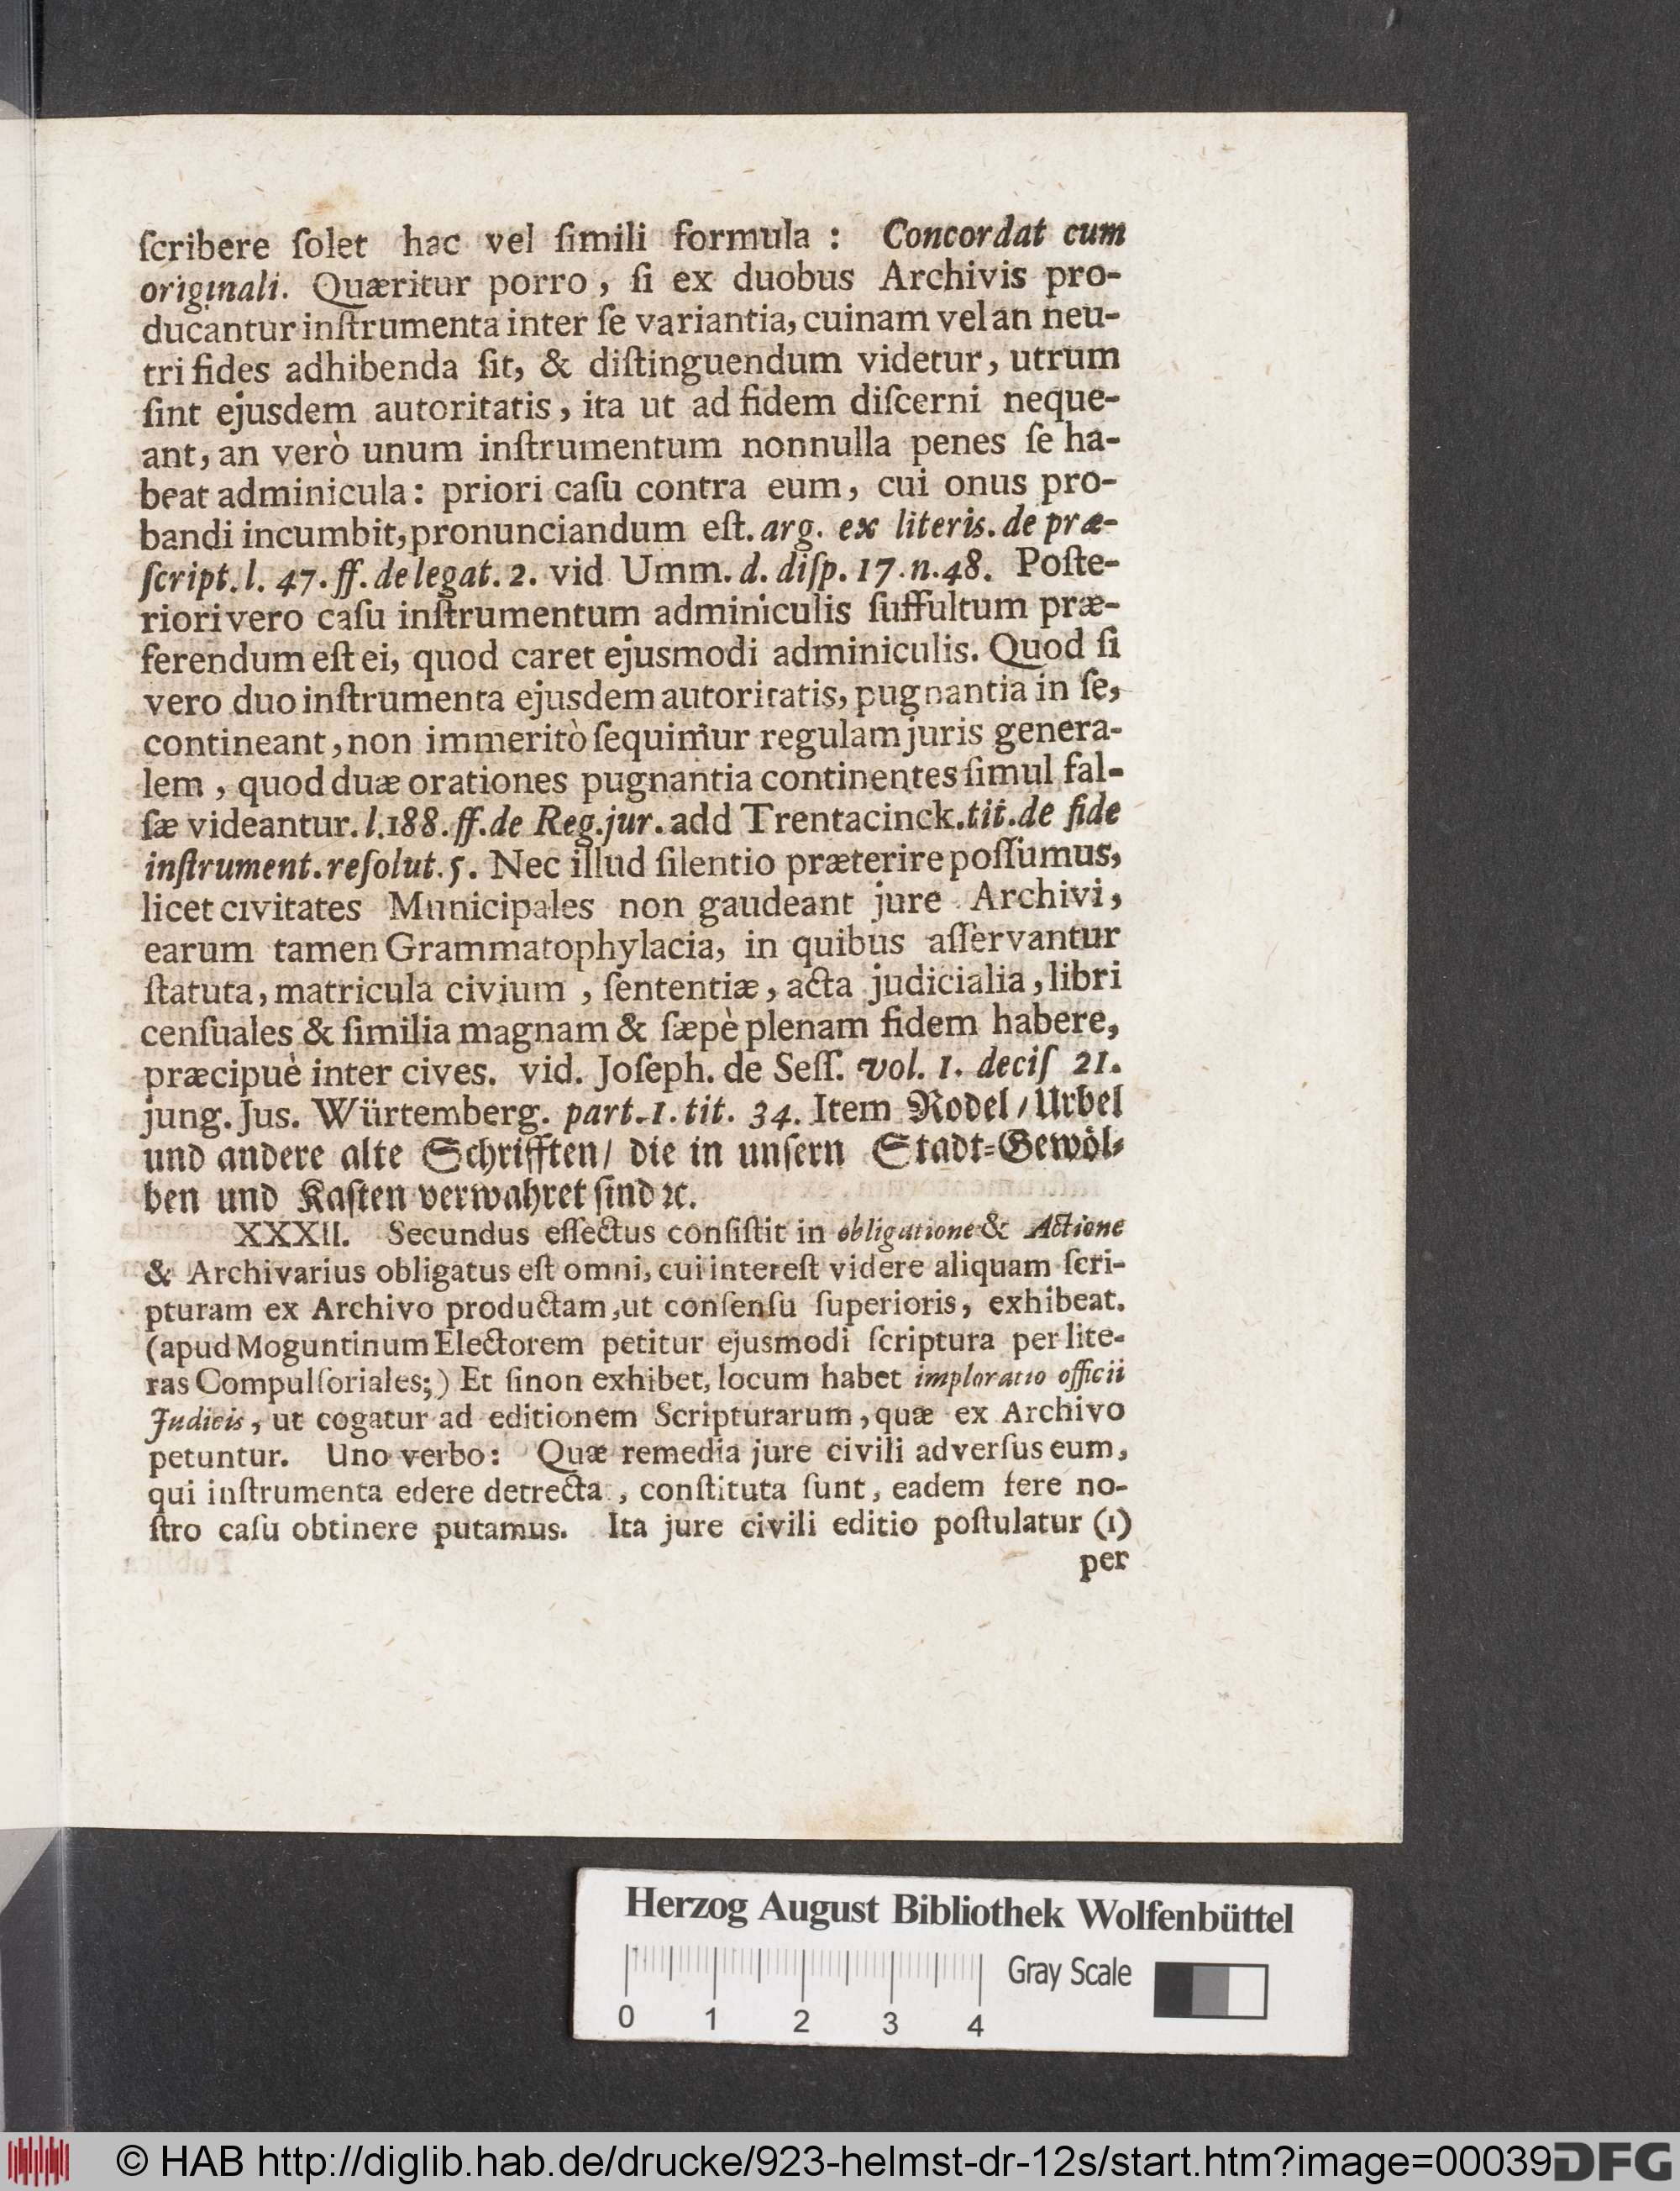 ſcribere ſolet hac vel ſimili formula : Concordat cum
originali. Quæritur porro, ſi ex duobus Archivis pro-
ducantur inſtrumenta inter ſe variantia, cuinam vel an neu-
tri fides adhibenda ſit, & diſtinguendum videtur, utrum
ſint ejusdem autoritatis, ita ut ad fidem diſcerni neque-
ant, an verò unum inſtrumentum nonnulla penes ſe ha-
beat adminicula: priori caſu contra eum, cui onus pro-
bandi incumbit, pronunciandum eſt. arg. ex literis. de præ-
ſcript. l. 47. ff. de legat. 2. vid Umm. d. diſp. 17. n. 48. Poſte-
riori vero caſu inſtrumentum adminiculis ſuffultum præ-
ferendum eſt ei, quod caret ejusmodi adminiculis. Quod ſi
vero duo inſtrumenta ejusdem autoritatis, pugnantia in ſe,
contineant, non immeritò ſequimur regulam juris genera-
lem, quod duæ orationes pugnantia continentes ſimul fal-
ſæ videantur. l. 188. ff. de Reg. jur. add Trentacinck. tit. de fide
inſtrument. reſolut. 5. Nec illud ſilentio præterire poſſumus,
licet civitates Municipales non gaudeant jure Archivi,
earum tamen Grammatophylacia, in quibus aſſervantur
ſtatuta, matricula civium, ſententiæ, acta judicialia, libri
cenſuales & ſimilia magnam & ſæpè plenam fidem habere,
præcipuè inter cives. vid. Joſeph. de Seſſ. vol. 1. deciſ 21.
jung. Jus. Würtemberg. part. 1. tit. 34. Item Rodel / Urbel
und andere alte Schrifften / die in unſern Stadt-Gewöl-
ben und Kaſten verwahret ſind ꝛc.
XXXII. Secundus effectus conſiſtit in obligatione & Actione
& Archivarius obligatus eſt omni, cui intereſt videre aliquam ſcri-
pturam ex Archivo productam, ut conſenſu ſuperioris, exhibeat.
(apud Moguntinum Electorem petitur ejusmodi ſcriptura per lite-
ras Compulſoriales;) Et ſi non exhibet, locum habet imploratio officii
Judicis, ut cogatur ad editionem Scripturarum, quæ ex Archivo
petuntur. Uno verbo: Quæ remedia jure civili adverſus eum,
qui inſtrumenta edere detrecta , conſtituta ſunt, eadem fere no-
ſtro caſu obtinere putamus. Ita jure civili editio poſtulatur (1)
per
Herzog August Bibliothek Wolfenbüttel
Gray Scale
0 1 2 3 4
© HAB http://diglib.hab.de/drucke/923-helmst-dr-12s/start.htm?image=00039
DFG